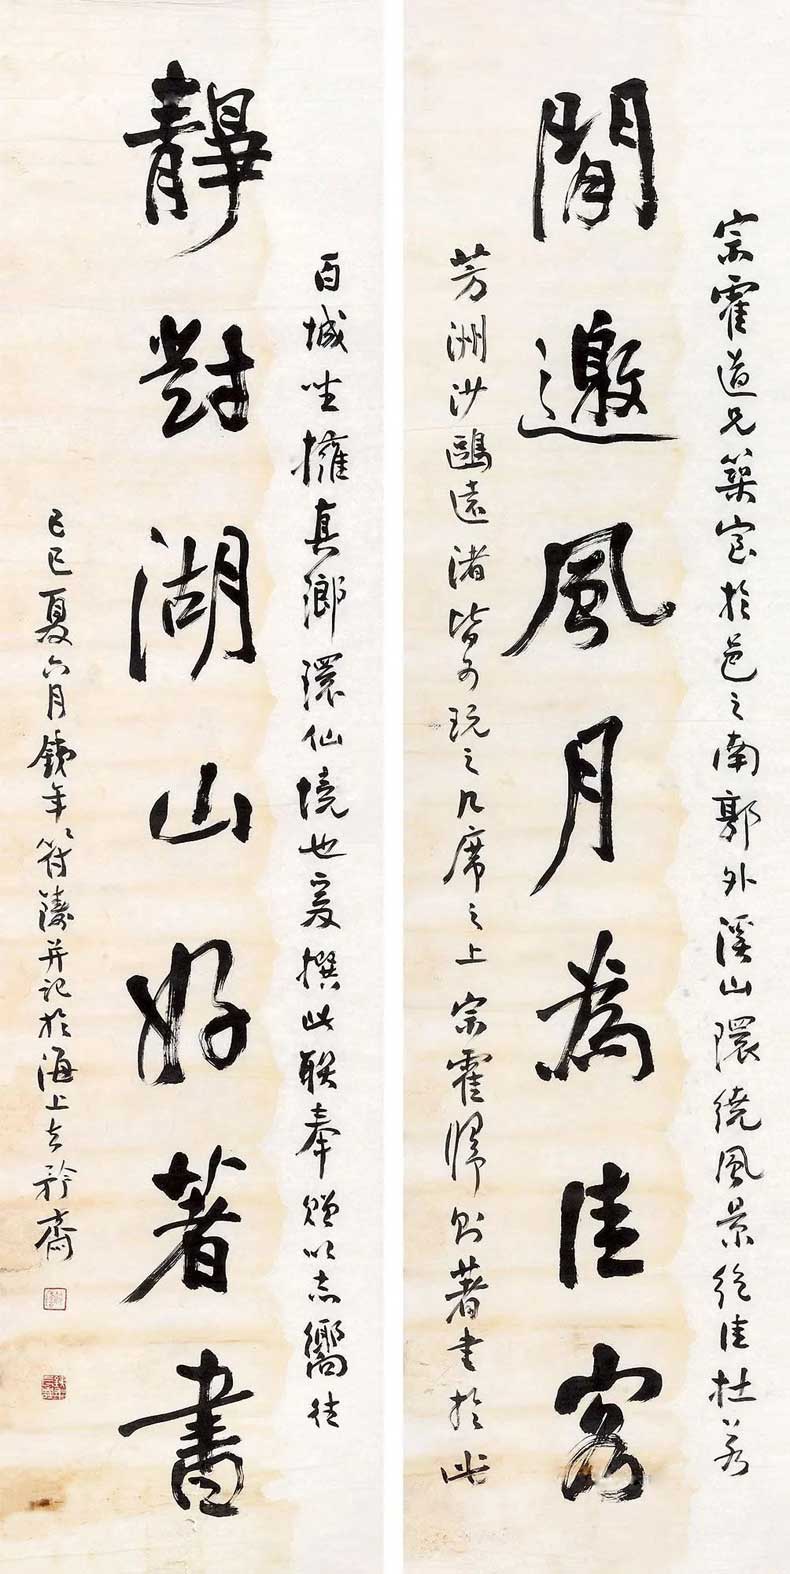 宗霍道兄築室於邑之南郭外溪山環繞風景絕佳杜若
閒邀風月為佳客
芳洲沙鷗遠渚皆可玩之几席之上宗霍歸則著書於此
百城坐擁真瑯環仙境也爰撰此聯奉贈以志嚮往
靜對湖山好著書
己巳夏六月鐵年符鑄并記於海上去矜齋